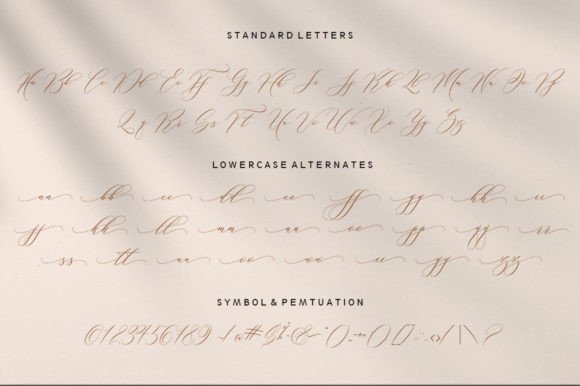 STANDARD LETTERS
Aa Bb Cc Dd Ee Ff Gg Hh Ii Jj Kk Ll Mm Nn Oo Pp
Qq Rr Ss Tt Uu Vv Ww Xx Yy Zz
LOWERCASE ALTERNATES
aa bb cc dd ee ff gg hh ii
jj kk ll mm nn oo pp qq rr
ss tt uu vv ww xx yy zz
SYMBOL & PEMTUATION
0123456789